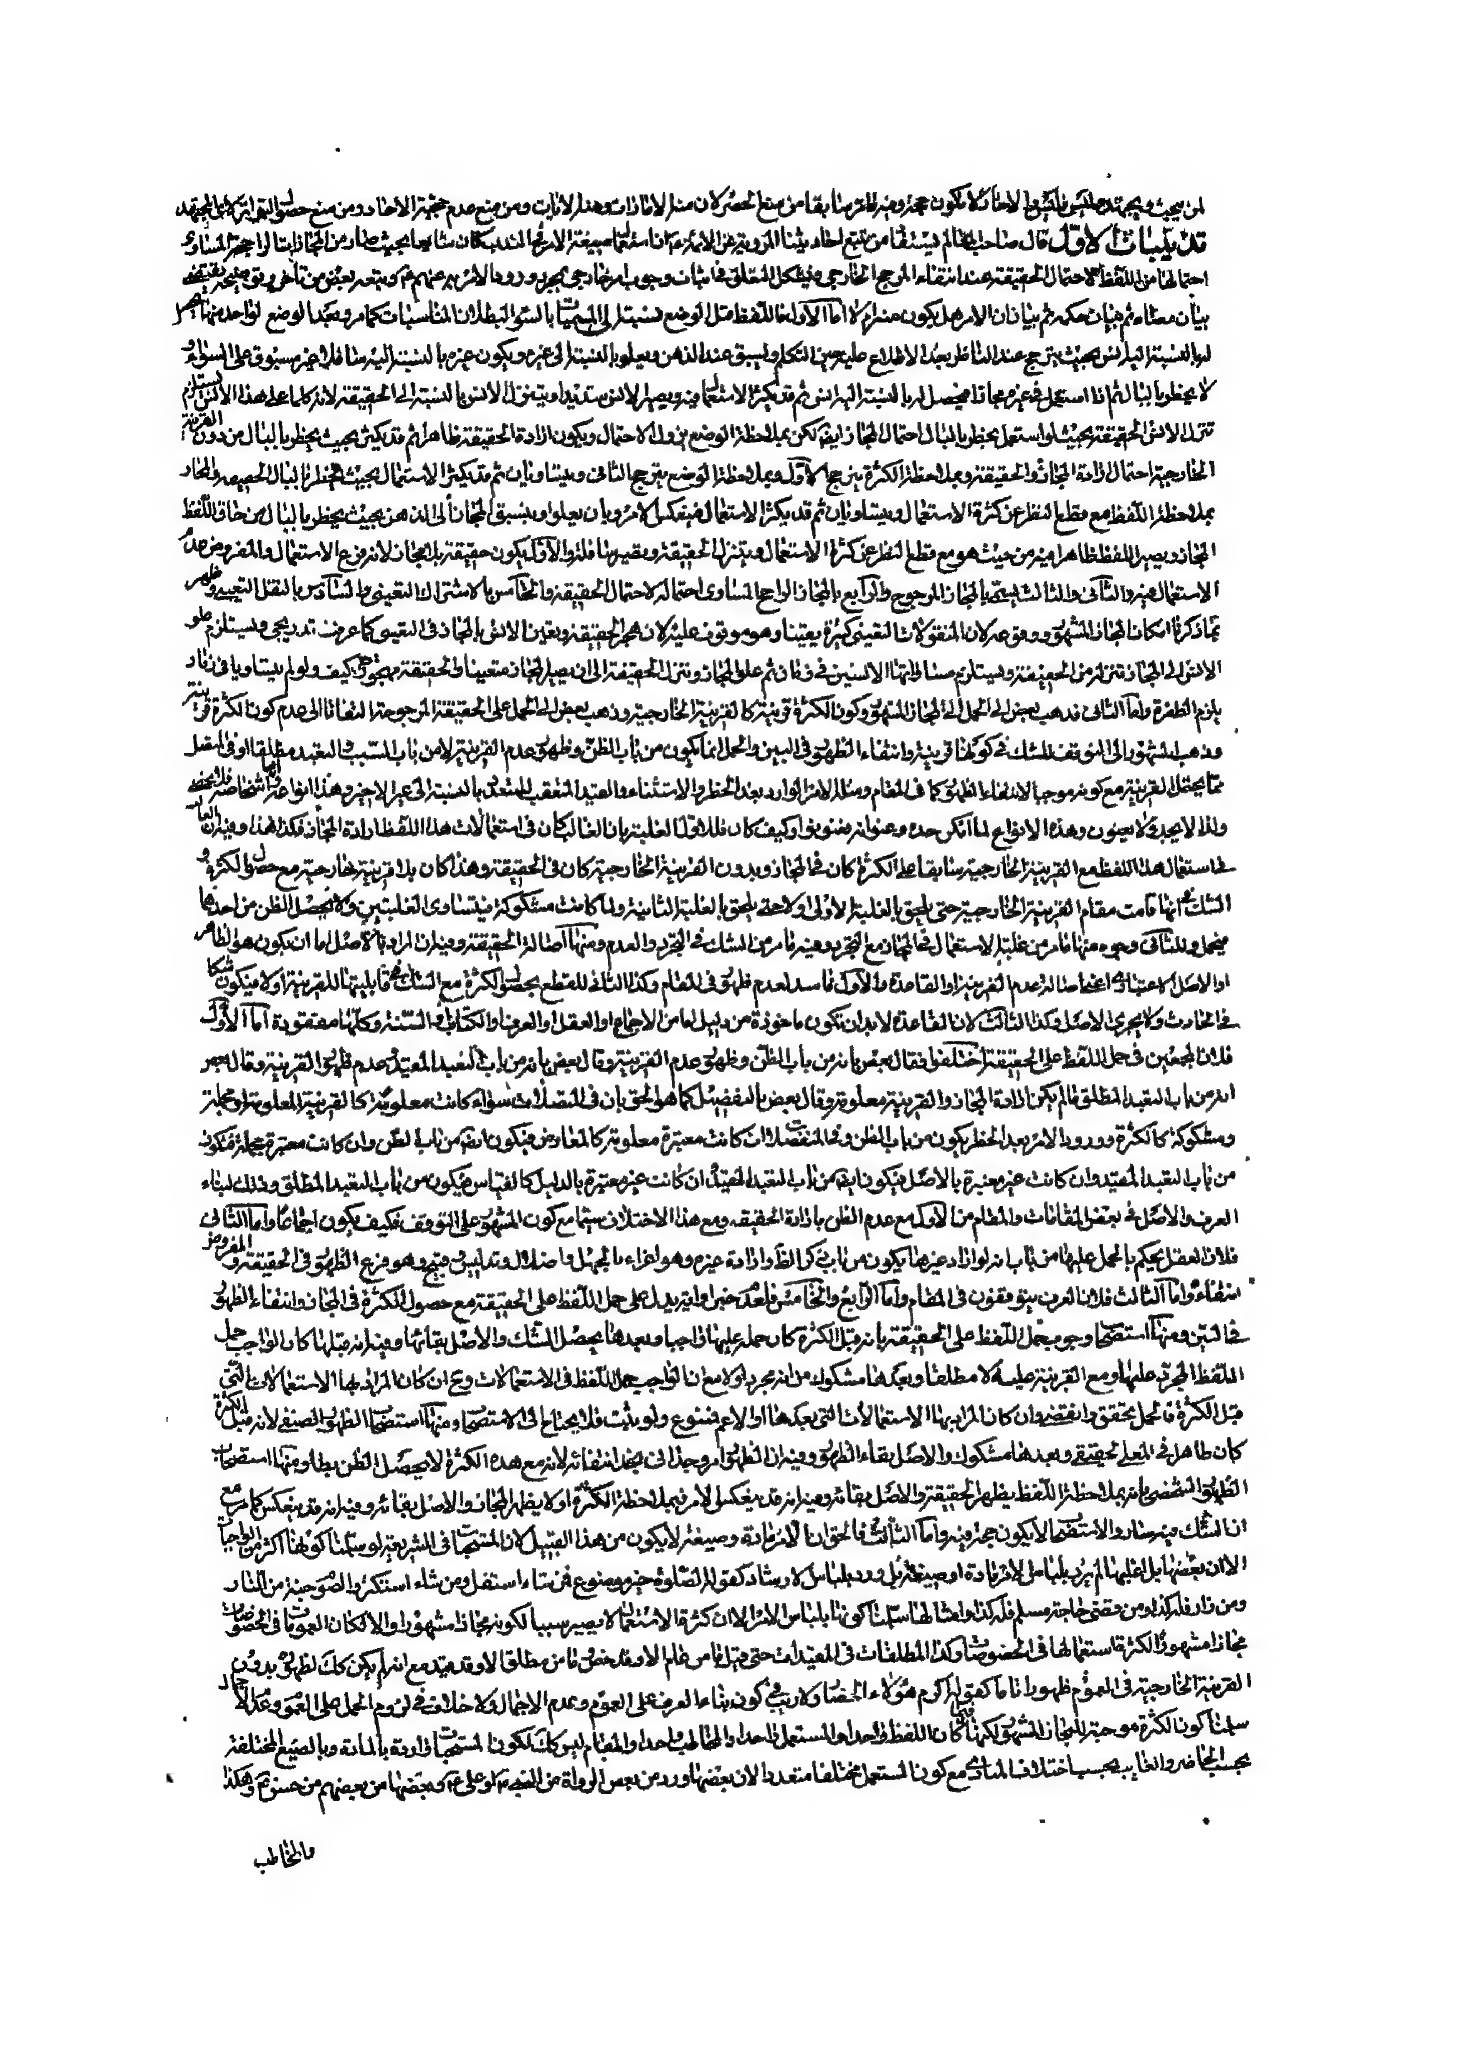 تذنيبات الاول قال صاحب المعالم يستفاد من تتبع احاديثنا المروية عن الائمة ان استعمال صيغة الامر في الندب كان شايعا بحيث صار من المجازات الراجحة المساوى
احتمالها من اللفظ لاحتمال الحقيقة عند انتفاء المرجح الخارجى ويشكل التعلق في اثبات وجوب امر خارجى بمجرد ورود الامر به عنهم
بيان معناه ثم بيان حكمه ثم بيان ان الامر هل يكون منه ام لا اما الاول فاللفظ قبل الوضع نسبته الى المسميات بالسواء لبطلان المناسبات كما مر وبعد الوضع لواحد منها يحصل
له بالنسبة اليه انس بحيث يترجح عند الناظر بعد الاطلاع عليه حين التكلم ويسبق عند الذهن ويعلو بالنسبة الى غيره ويكون غيره بالنسبة اليه سافلا غير مسبوق على السواء و
لا يخطر بالبال ثم اذا استعمل في غيره مجازا فيحصل له بالنسبة اليه انس ثم قد يكثر الاستعمال فيه ويصير الانس شديدا ويتنزل الانس بالنسبة الى الحقيقة لانه كلما علا هذا الانس يستلزم
تنزل الانس الحقيقة بحيث لو استعمل يخطر بالبال احتمال المجاز ايضا لكن بملاحظة الوضع يزول الاحتمال ويكون ارادة الحقيقة ظاهرا ثم قد يكثر بحيث يخطر بالبال من دون القرينة
الخارجية احتمال ارادة المجاز والحقيقة وبملاحظة الكثرة يترجح الاول وبملاحظة الوضع يترجح الثانى ويتساويان ثم قد يكثر الاستعمال بحيث يخطر بالبال الحقيقة والمجاز
بملاحظة اللفظ مع قطع النظر عن كثرة الاستعمال ويتساويان ثم قد يكثر الاستعمال فينعكس الامر وبان يعلو ويسبق المجاز الى الذهن بحيث يخطر بالبال من حاق اللفظ
المجاز ويصير اللفظ ظاهرا فيه من حيث هو مع قطع النظر عن كثرة الاستعمال ويتنزل الحقيقة ويصير سافلة والاول يكون حقيقة بلا مجاز لانه فرع الاستعمال والمفروض عدم
الاستعمال في غيره والثانى والثالث يسمى بالمجاز المرجوح والرابع بالمجاز الراجح المساوى احتماله لاحتمال الحقيقة والخامس بالاشتراك التعينى والسادس بالنقل التعينى وظهر
مما ذكرنا امكان المجاز المشهور ووقوعه لان المنقولات التعينى كثيرة يقينا وهو موقوف عليه لان هجر الحقيقة وتعين الانس بالمجاز في التعينى كما عرفت تدريجى ويستلزم علو
الانس الى المجاز تنزله من الحقيقة ويستلزم مساواتهما الانسين في زمان ثم علو المجاز وتنزل الحقيقة الى ان يصير المجاز متعينا والحقيقة مهجورة كيف ولو لم يتساويا في زمان
يلزم الطفرة واما الثانى فذهب بعض الى الحمل الى المجاز المشهور وكون الكثرة قرينة كالقرينة الخارجية وذهب بعض الى الحمل على الحقيقة المرجوحة التفاتا الى عدم كون الكثرة قرينة
وذهب المشهور الى التوقف للشك في كونها قرينة وانتفاء الظهور في البين والحمل انما يكون من باب الظن وظهور عدم القرينة لا من باب السبب والتعبد مطلقا او في المتصل
مما يحتمل القرينة مع كونه موجبا لانتفاء الظهور كما في المقام ومثله الامر الوارد بعد الحظر والاستثناء والقيد المتعقب للمتعدد بالنسبة الى غير الاخير
في استعمال هذا اللفظ مع القرينة الخارجية سابقا على الكثرة كان في المجاز وبدون القرينة الخارجية كان في الحقيقة وهذا كان بلا قرينة خارجية مع حصول الكثرة و
الشك في انها قامت مقام القرينة الخارجية حتى يلحق بالغلبة الاولى او لا حتى يلحق بالغلبة الثانية ولما كانت مشكوكة فيتساوى الغلبتين ولا يحصل الظن من احدها
فيجمل وللثانى وجوه منها ما مر من غلبة الاستعمال في المجاز مع التجرد وفيه ما مر من الشك في التجرد والعدم ومنها اصالة الحقيقة وفيه ان المراد بالاصل اما ان يكون هو الظاهر
او الاصل الاعتبارى اعنى اصالة عدم القرينة او القاعدة والاول فاسد لعدم ظهور في المقام وكذا الثانى للقطع بحصول الكثرة مع الشك في قابليتها للقرينة او لا فيكون شكا
في الحادث ولا يجرى الاصل وكذا الثالث لان القاعدة لا بد ان تكون ماخوذة من دليل اما من الاجماع او العقل او العرف او الكتاب او السنة وكلها مفقودة اما الاول
فلان المجمعين في حمل اللفظ على الحقيقة اختلفوا فقال بعض بانه من باب الظن وظهور عدم القرينة وقال بعض بانه من باب التعبد المقيد بعدم ظهور القرينة وقال بعض
انه من باب التعبد المطلق ما لم يكن ارادة المجاز والقرينة معلومة وقال بعض بالتفصيل كما هو الحق بان في المتصلات سواء كانت معلومة كالقرينة المعلومة او مجملة
ومشكوكة كالكثرة وورود الامر بعد الحظر يكون من باب الظن وفي المنفصلات ان كانت معتبرة معلومة كالمعارض فيكون ايضا من باب الظن وان كانت معتبرة مجملة فيكون
من باب التعبد المقيد وان كانت غير معتبرة بالاصل فيكون ايضا من باب التعبد المقيد وان كانت غير معتبرة بالدليل كالقياس فيكون من باب التعبد المطلق وذلك لبناء
العرف والاصل في بعض المقامات والمقام من الاول مع عدم الظن بارادة الحقيقة ومع هذا الاختلاف سيما مع كون المشهور على التوقف فكيف يكون اجماعا واما الثانى
فلان العقل يحكم بالحمل عليها من باب انه لو اراد غيرها يكون من باب ذكر الظاهر وارادة غيره وهو اغراء بالجهل واضلال وتدليس قبيح وهو فرع الظهور في الحقيقة والمفروض
انتفاءه واما الثالث فلان العرف يتوقفون في المقام واما الرابع والخامس فلعدم خبر او اية يدل على حمل اللفظ على الحقيقة مع حصول الكثرة في المجاز وانتفاء الظهور
في البين ومنها استصحاب وجوب حمل اللفظ على الحقيقة بانه قبل الكثرة كان حمله عليها واجبا وبعدها يحصل الشك والاصل بقائها وفيه انه قبلها كان الواجب حمل
اللفظ المجرد عليها ومع القرينة عليه لا مطلقا وبعدها مشكوك من انه مجرد او لا مع ان الواجب حمل اللفظ في الاستعمالات وح ان كان المراد بها الاستعمالات التى
قبل الكثرة فالحمل تحقق وانقضى وان كان المراد بها الاستعمالات التى بعدها او الاعم فممنوع ولو ثبت فلا يحتاج الى الاستصحاب ومنها استصحاب الظهور الصنفى لانه قبل الكثرة
كان ظاهرا في المعنى الحقيقى وبعدها مشكوك والاصل بقاء الظهور وفيه ان الظهور امر وجدانى نجد انتفائه لانه مع هذه الكثرة لا يحصل الظن بطل ومنها استصحاب
الظهور الشخصى بانه بملاحظة اللفظ يظهر الحقيقة والاصل بقائه وفيه انه قد ينعكس الامر فبملاحظة الكثرة او لا يظهر المجاز والاصل بقائه وفيه انه قد ينعكس كما مر مع
ان الشك فيه سار والاستصحاب لا يكون حجة فيه واما الثالث فالحق ان الامر مادة وصيغة لا يكون من هذا القبيل لان المستحبات في الشريعة لو سلمنا كونها اكثر من الواجبات
الا ان بعضها بل اغلبها لم يرد بلباس الامر مادة او صيغة بل ورد بلباس الارشاد كقوله الصلوة خير موضوع فمن شاء استقل ومن شاء استكثر والصوم جنة من النار
ومن زار فله كذا ومن قضى حاجة مسلم فله كذا وامثالها سلمنا كونها بلباس الامر الا ان كثرة الاستعمال لا يصير سببا لكونه مجازا مشهورا والا لكان العمومات في الخصوصات
مجازا مشهورا لكثرة استعمالها في الخصوصات وكذا المطلقات في المقيدات حتى قيل ما من عام الا وقد خص وما من مطلق الا وقد قيد مع انه لم يكن كذلك لظهوره بدون
القرينة الخارجية في العموم ظهورا تاما كقوله اكرم هؤلاء الحضار ولا ريب في كون بناء العرف على العموم وعدم الاجمال ولا خلاف في لزوم الحمل على العموم وعدم الاجمال
سلمنا كون الكثرة موجبة للمجاز المشهور لكنها فيما كان اللفظ واحدا والمستعمل واحدا والمخاطب واحدا والمقام ليس كذلك لكون المستحبات واردة بالمادة وبالصيغ المختلفة
بحسب الحاضر والغايب وبحسب اختلاف المبادى مع كون المستعمل مختلفا متعددا لان بعضها ورد من بعض الرواة
والمخاطب